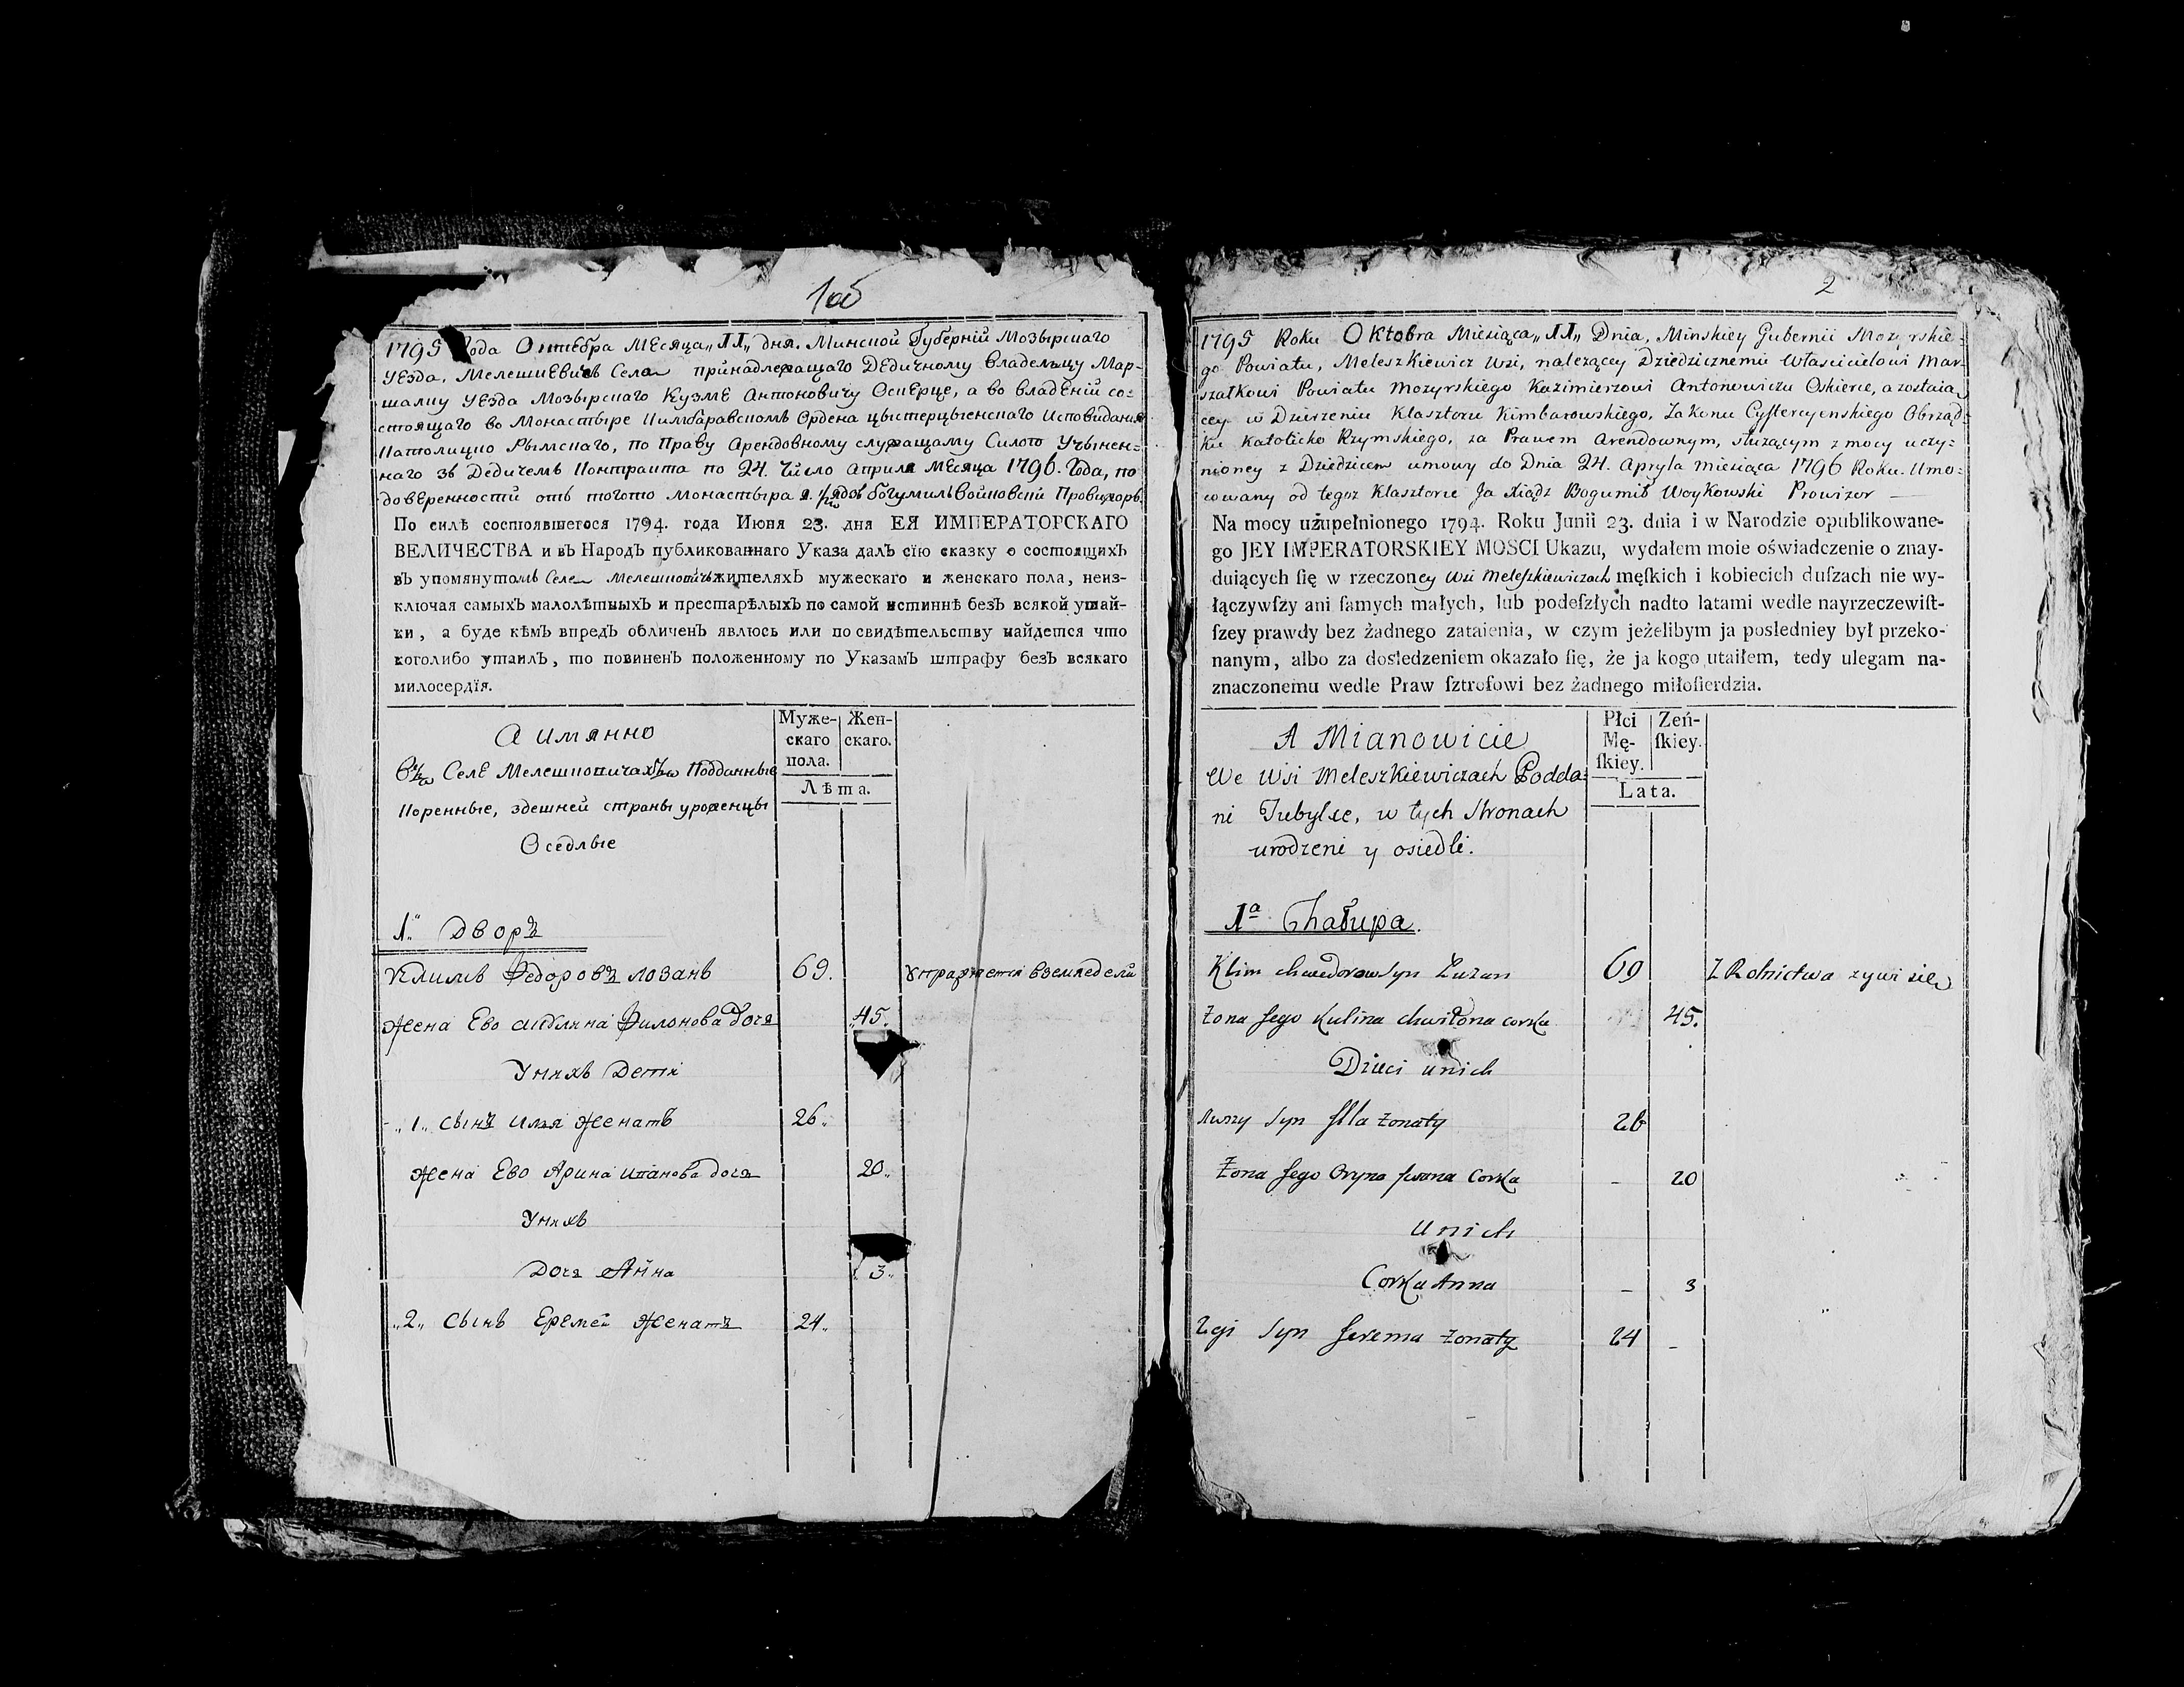 1об
1795 Года Октебра Месяца „11„ дня. Минской Губерній Мозырскаго
уезда, Мелешкевичь Села принадлежащаго Дедичному Владельцу Мар-
шалку уезда Мозырскаго Кузме Антоновичу Оскерце, а во Владеній со-
стоящаго во Монастыре Кимбаравскомъ Ордена цыстерцыенскаго Исповидания
Католицко Рымскаго, по Праву Арендовному служащему Силою Учынен-
наго зъ Дедичемъ Контракта по 24. Число Априля Месяца 1796. Года, по
доверенности отъ тогото Монастыра я Богумилъ Войковскй Провизоръ
По силѣ состоявшегося 1794. года Июня 23. дня ЕЯ ИМПЕРАТОРСКАГО
ВЕЛИЧЕСТВА и въ Народъ публикованнаго Указа далъ сїю сказку о состоящихъ
въ упомянутомъ Селе Мелешковичъ жителяхъ мужескаго и женскаго пола, неиз-
ключая самыхъ малолѣтныхъ и престарѣлыхъ по самой истиннѣ безъ всякой утай-
ки, а буде кѣмъ впредъ обличенъ явлюсь или по свидѣтельству найдется что
коголибо утаилъ, то повиненъ положенному по Указамъ штрафу безъ всякаго
милосердїя.
А имянно
Муже-
скаго
пола.
Жен-
скаго.
Лѣта.
Селе Мелешковичахъ Подданные
Коренные, здешней страны уроженцы
Оседлые
1„ Дворъ
Климъ Федоровъ лозанъ 69. упражнется вземледели
жена Ево акулина Филонова дочь „45.
Унихъ Дети
„1„ сынъ Илья женатъ 26„
жена Ево Арина иванова дочь 20„
Унихъ
дочь Анна 3„
„2„ сынъ Еремей женатъ 24„
2
1795 Roku Oktobra Miesiąca „11„ Dnia, Minskiey Gubernii Mozyrskie-
go Powiatu, Meleszkiewicz Wsi, nalezącey Dziedzicznemu Właścicielowi Mar-
szałkowi Powiatu Mozyrskiego Kazimierzowi Antonowiczu Oskierce, a zostaią-
cey w Dzierzeniu Klasztoru Kimbarowskiego, Zakonu Cystercyenskiego Obrząd-
ku Katolicko Rzymskiego, za Prawem Arendownym, służącym z mocy uczy-
nioney z Dziedzicem umowy do Dnia 24. Apryla Miesiąca 1796 Roku. Umo-
cowany od tegoz Klasztoru Ja Xiądz Bogumił Woykowski Prowizor
Na mocy użupełnionego 1794. Roku Junii 23. dnia i w Narodzie opublikowane-
go JEY IMPERATORSKIEY MOSCI Ukazu, wydałem moie oświadczenie o znay-
duiących ſię w rzeczoney Wsi Meleszkiewiczach męſkich i kobiecich duſzach nie wy-
łączywſzy ani ſamych małych, lub podeſzłych nadto latami wedle nayrzeczewiſt-
ſzey prawdy bez żadnego zataienia, w czym jeżelibym ja posledniey był przeko-
nanym, albo za dosledzeniem okazało ſię, że ja kogo utaiłem, tedy ulegam na-
znaczonemu wedle Praw ſztrofowi bez żadnego miłoſierdzia.
A Mianowicie
Płci
Mę-
ſkiey.
Zeń-
ſkiey.
Lata.
We Wsi Meleszkiewiczach Podda-
ni Tubylce, w tych Stronach
urodzeni y osiedli.
1a Chałupa.
Klim chwedorow Syn Luzan 69 Z Rolnictwa zywi sie
Zona Jego Kulina chwiłona corka 45.
Dzieci unich
Syn Illa zonaty 26
Zona Jego Oryna Iwana Corka - 20
Unich
Corka Anna - 3
2gi Syn Jerema zonaty 24 -